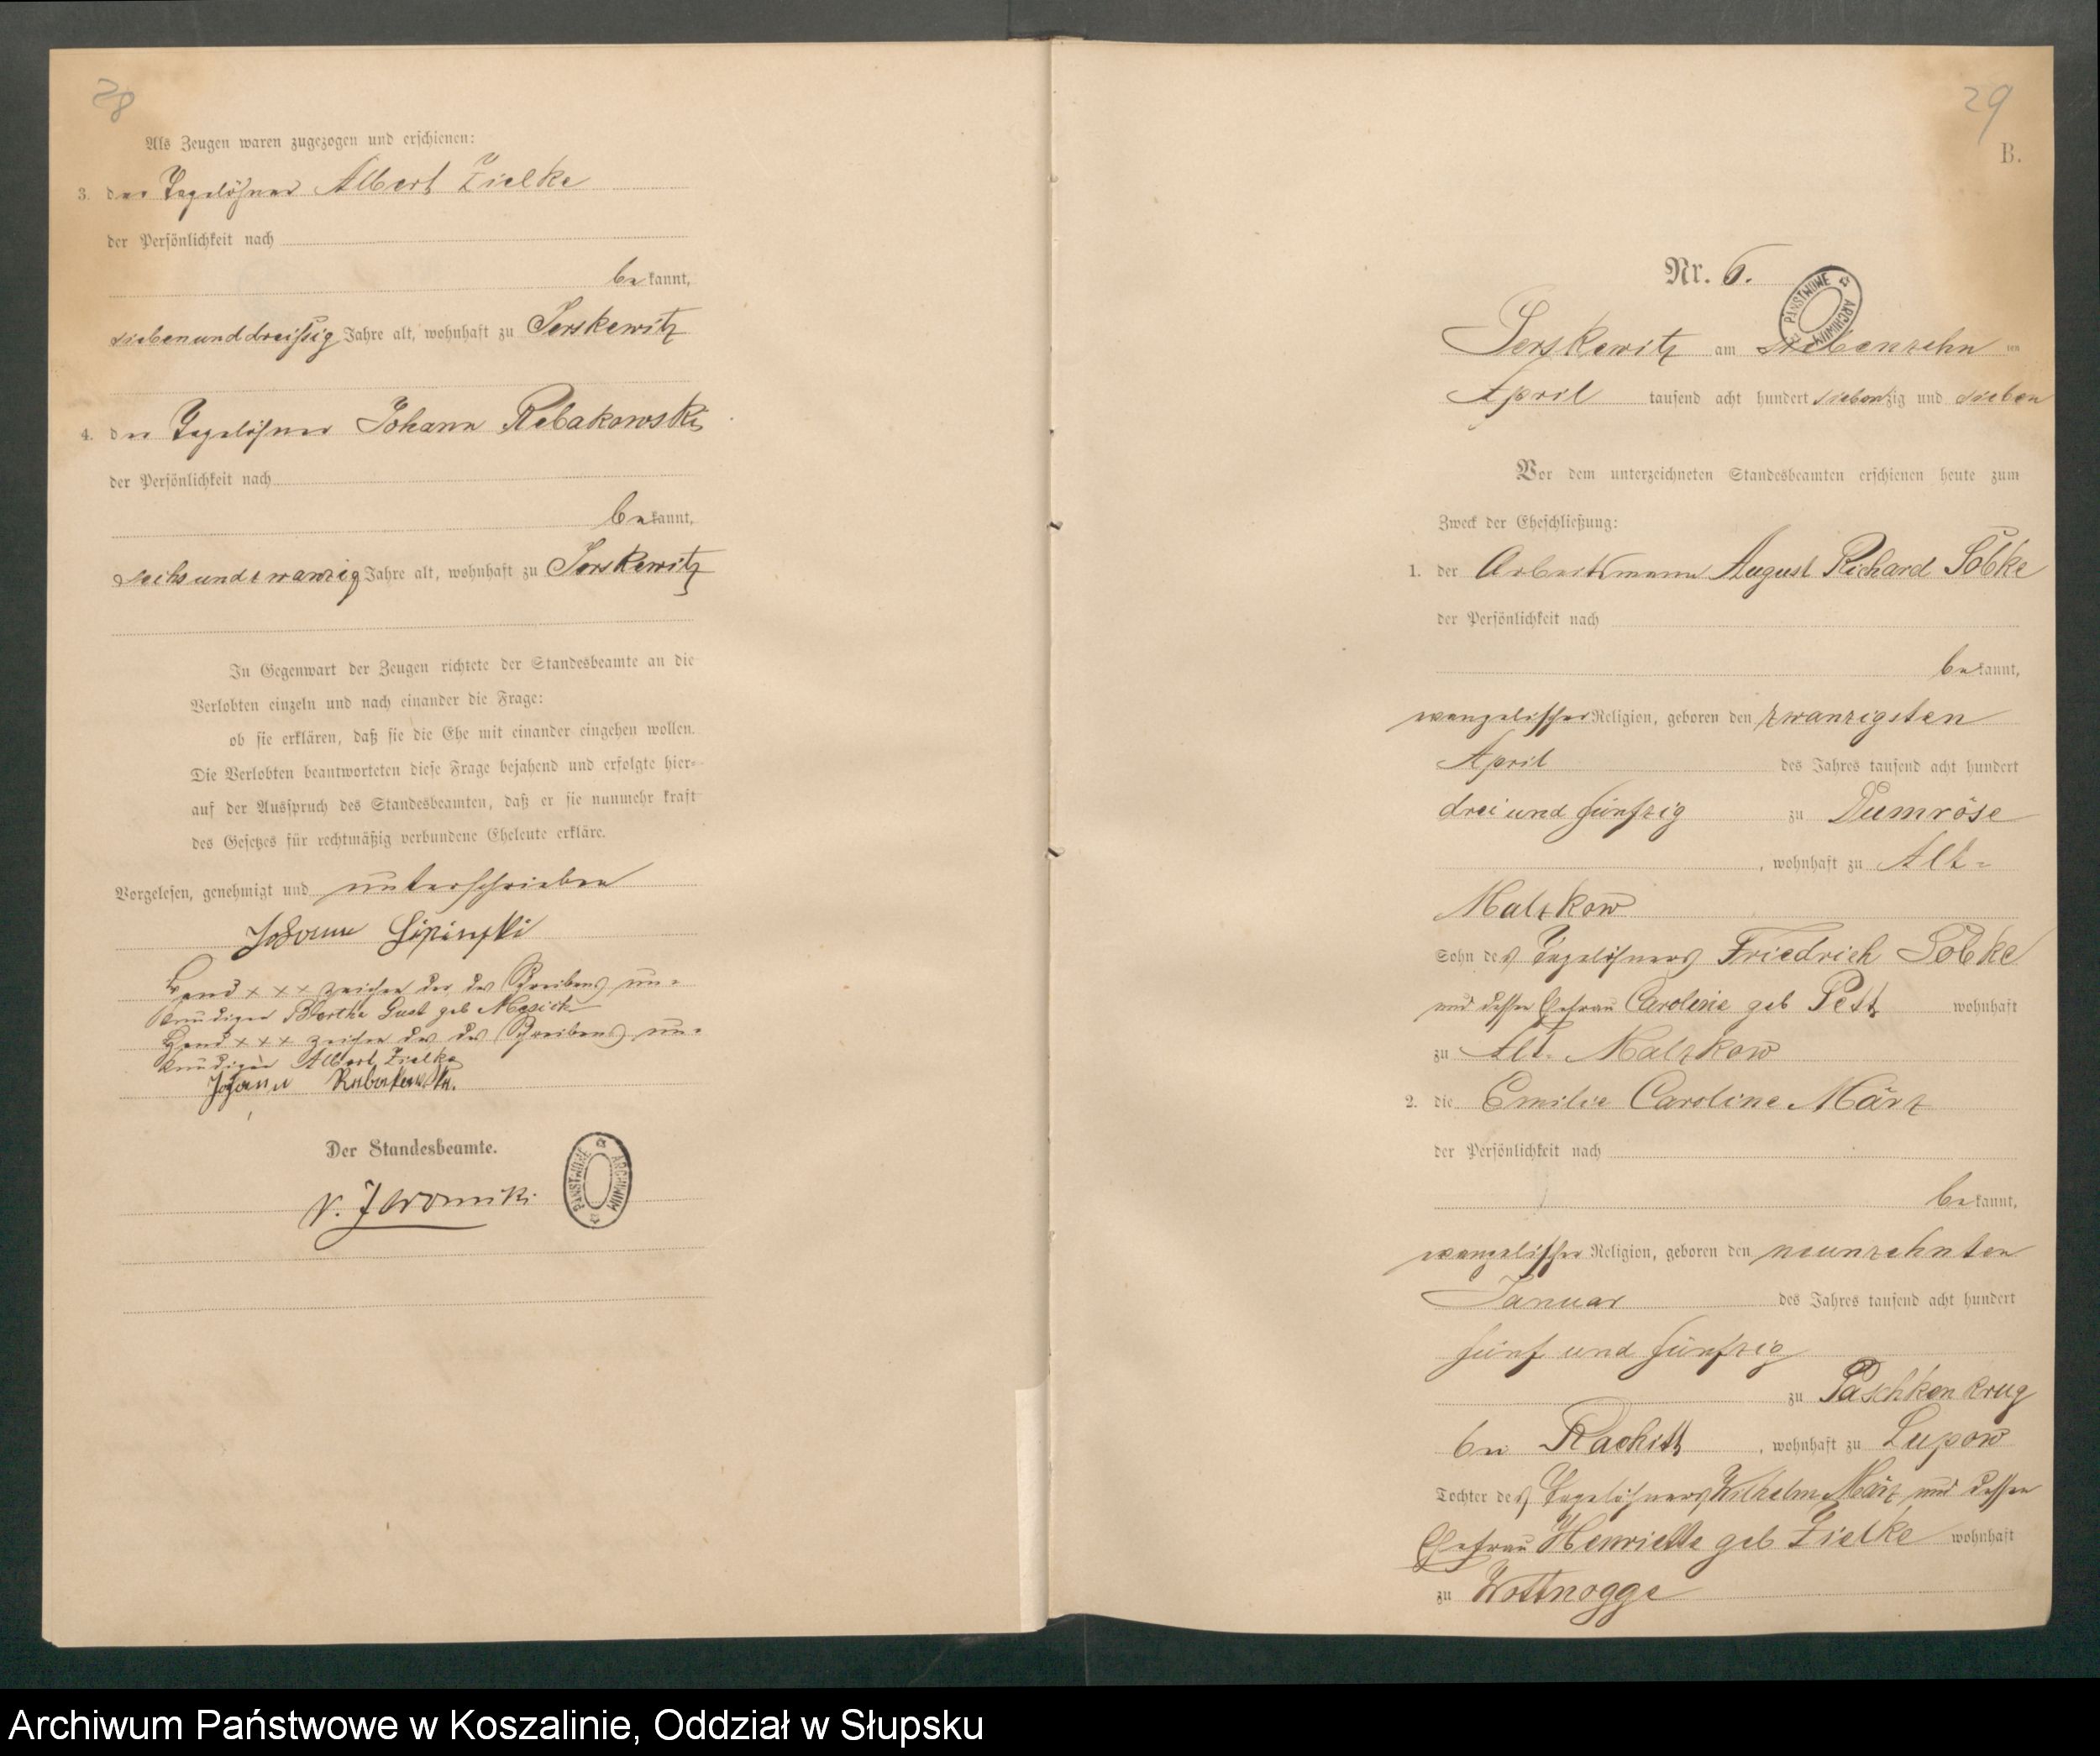 28
Als Zeugen waren zugezogen und erschienen:
3. der Tagelöhner Albert Zielke
der Persönlichkeit nach
bekannt,
siebenunddreißig Jahre alt, wohnhaft zu Serskewitz
4. der Tagelöhner Johann Rebakowski
der Persönlichkeit nach
bekannt,
sechsundzwanzig Jahre alt, wohnhaft zu Serskewitz
In Gegenwart der Zeugen richtete der Standesbeamte an die
Verlobten einzeln und nach einander die Frage:
ob sie erklären, daß sie die Ehe mit einander eingehen wollen.
Die Verlobten beantworteten diese Frage bejahend und erfolgte hier-
auf der Ausspruch des Standesbeamten, daß er sie nunmehr kraft
des Gesetzes für rechtmäßig verbundene Eheleute erkläre.
Vorgelesen, genehmigt und unterschrieben
Johann Lipinski
Hand x x x zeichen der des Schreibens un-
kundigen Bertha Gust geb Masich
Hand x x x zeichen des des Schreibens un-
kundigen Albert Zielke
Johann
Der Standesbeamte.
29
B.
Nr. 6.
PANSTWOWE ARCHIWUM
Serskewitz am siebenzehn ten
April tausend acht hundert siebenzig und sieben
Vor dem unterzeichneten Standesbeamten erschienen heute zum
Zweck der Eheschließung:
1. der Arbeitsmann August Richard Sobke
der Persönlichkeit nach
bekannt,
evangelischer Religion, geboren den zwanzigsten
April des Jahres tausend acht hundert
drei und fünfzig zu Dumröse
, wohnhaft zu Alt-
Malzkow
Sohn des Tagelöhners Friedrich Sobke
und dessen Ehefrau Caroline geb Pett wohnhaft
zu Alt- Malzkow
2. die Emilie Caroline März
der Persönlichkeit nach
bekannt,
evangelischer Religion, geboren den neunzehnten
Januar des Jahres tausend acht hundert
fünf und fünfzig
zu Paschkenkrug
bei Rackitt, wohnhaft zu Lupow
Tochter des Tagelöhners Wilhelm März und dessen
Ehefrau Henriette geb Zielke wohnhaft
zu Wottnogge
PANSTWOWE ARCHIWUM
Archiwum Państwowe w Koszalinie, Oddział w Słupsku